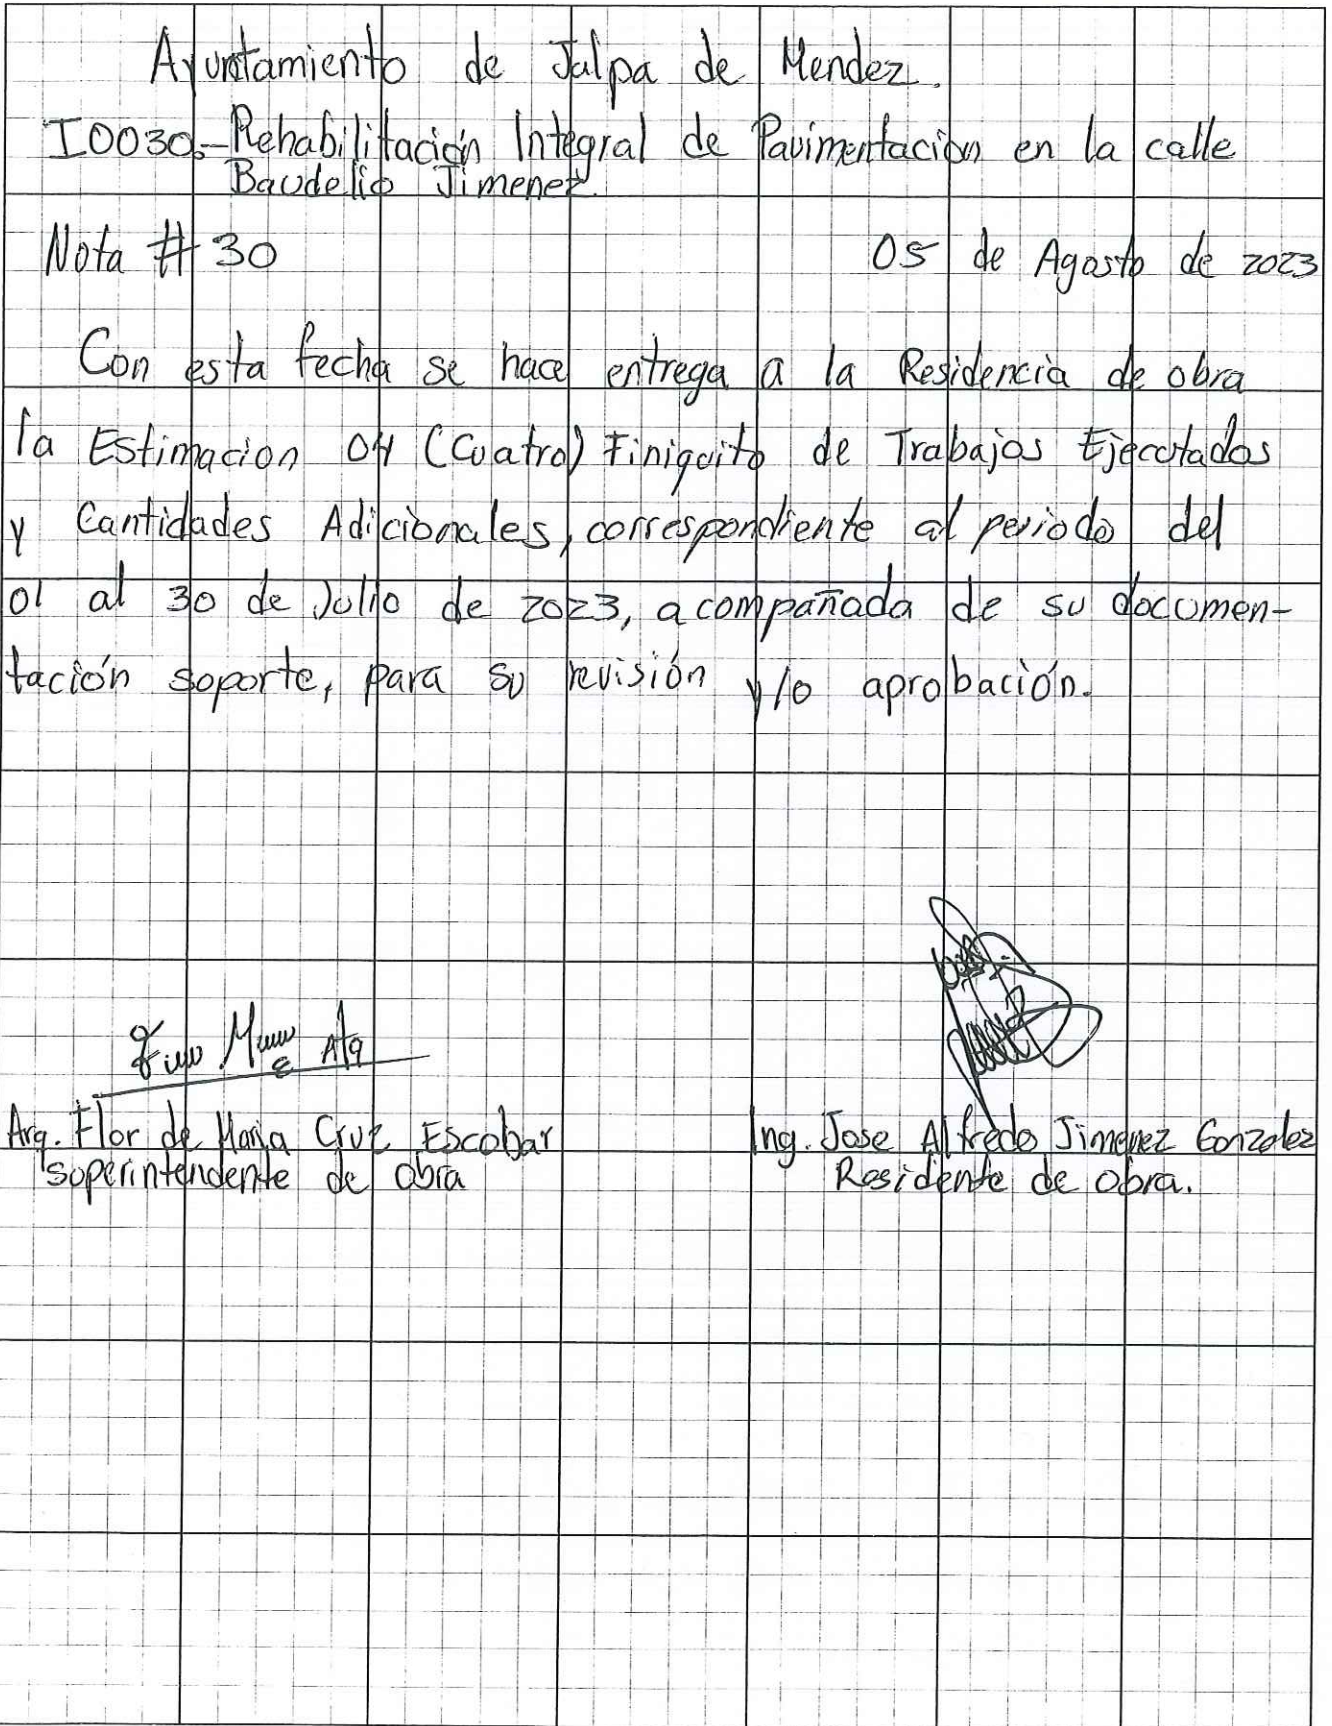 Ayuntamiento de Jalpa de Mendez.
I0030.-Rehabilitación Integral de Pavimentación en la calle
Baudelio Jimenez.
Nota # 30 05 de Agosto de 2023
Con esta fecha se hace entrega a la Residencia de obra
la Estimacion 04 (Cuatro) Finiquito de Trabajos Ejecutados
y Cantidades Adicionales, correspondiente al periodo del
01 al 30 de Julio de 2023, acompañada de su documen-
tación soporte, para su revisión y/o aprobación.
Arq. Flor de Maria Cruz Escobar Ing. Jose Alfredo Jimenez Gonzalez
superintendente de obra Residente de obra.